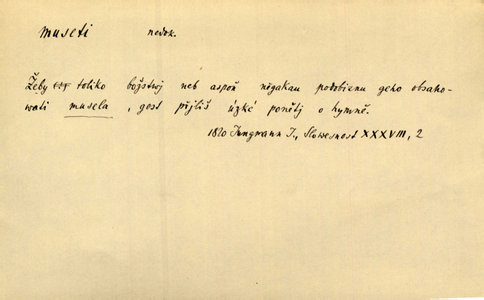 museti nedok.
Žeby toliko božstwj neb aspoň něgakau podobnu geho obsaho-
wati musela, gest přjliš úzké ponětj o hymně.
1820 Jungmann J., Slowesnost XXXVIII, 2